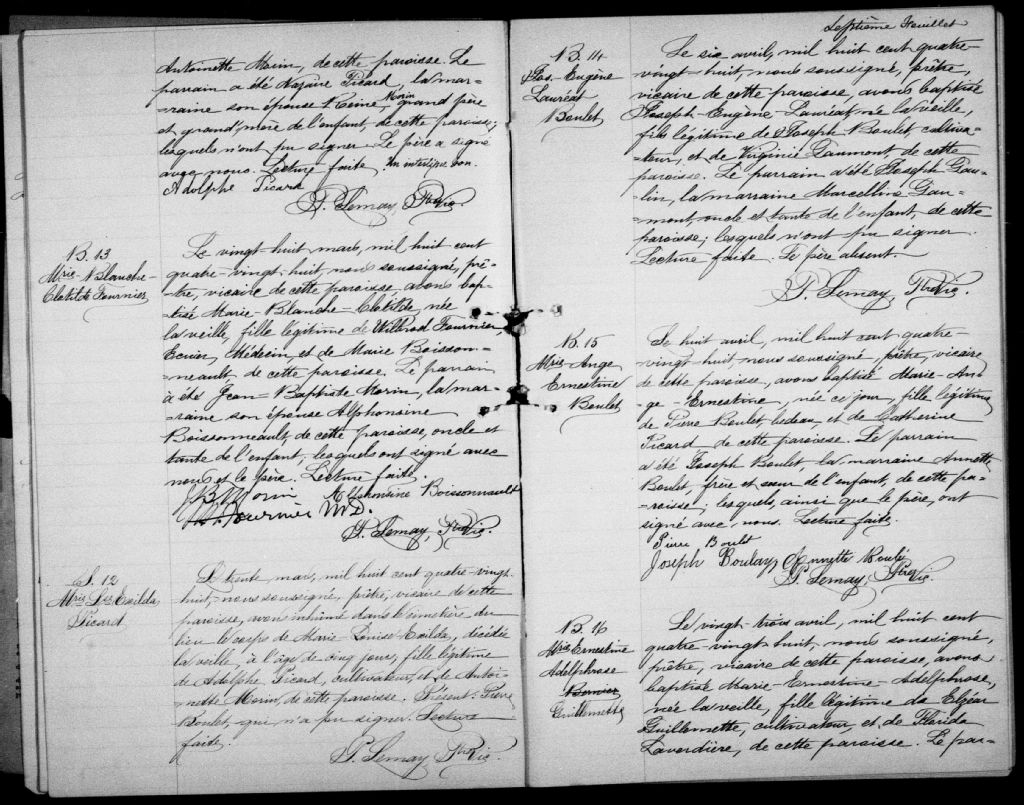 Antoinette Morin, de cette paroisse. Le
parrain a été Nazaire Picard, la mar-
raine son épouse Reine Morin grand père
et grand'mère de l'enfant, de cette paroisse;
lesquels n'ont pu signer. Le père a signé
avec nous. Lecture faite. Un interligne bon.
Adolphe Picard
P. Lemay, Ptre Vic.
B. 13
Mrie Blanche-
Clotilde Fournier
Le vingt-huit mars, mil huit cent
quatre-vingt-huit, nous soussigné, prê-
tre, vicaire de cette paroisse, avons bap-
tisé Marie-Blanche-Clotilde, née
la veille, fille légitime de Wilfrid Fournier
Ecuier, Médecin, et de Marie Boisson-
neault, de cette paroisse. Le parrain
a été Jean-Baptiste Morin, la mar-
raine son épouse Alphonsine
Boissonneault, de cette paroisse, oncle et
tante de l'enfant, lesquels ont signé avec
nous et le père. Lecture faite.
J B Morin Alphonsine Boissonnault
Fournier M.D.
P. Lemay, Ptre Vic.
S. 12
Mrie Lse Exilda
Picard
Le trente mars, mil huit cent quatre-vingt-
huit, nous soussigné, prêtre, vicaire de cette
paroisse, avons inhumé dans le cimetière du
lieu le corps de Marie-Louise-Exilda, décédée
la veille, à l'âge de cinq jours, fille légitime
de Adolphe Picard, cultivateur, et de Antoi-
nette Morin, de cette paroisse. Présent: Pierre
Boulet, qui n'a pu signer. Lecture
faite.
P. Lemay, Ptre Vic.
Septième Feuillet
B. 14
Jos. Eugène
Lauréat
Boulet
Le six avril, mil huit cent quatre-
vingt-huit, nous soussigné, prêtre,
vicaire de cette paroisse, avons baptisé
Joseph-Eugène-Lauréat, né la veille,
fils légitime de Joseph Boulet, cultiva-
teur, et de Virginie Gaumont de cette
paroisse. Le parrain a été Joseph Gau-
lin, la marraine Marcelline Gau-
mont, oncle et tante de l'enfant, de cette
paroisse; lesquels n'ont pu signer.
Lecture faite. Le père absent.
P. Lemay, Ptre Vic.
B. 15
Mrie Ange
Ernestine
Boulet
Le huit avril, mil huit cent quatre-
vingt-huit, nous soussigné, prêtre, vicaire
de cette paroisse, avons baptisé Marie-An-
ge-Ernestine, née ce jour, fille légitime
de Pierre Boulet, bedeau, et de Catherine
Picard de cette paroisse. Le parrain
a été Joseph Boulet, la marraine Annette
Boulet, frère et sœur de l'enfant, de cette pa-
roisse; lesquels, ainsi que le père, ont
signé avec nous. Lecture faite.
Pierre Boulet
Joseph Boulay Annette Boulé
P. Lemay, Ptre Vic.
B. 16
Mrie Ernestine
Adelphrose
Bernier
Guillemette
Le vingt-trois avril, mil huit cent
quatre-vingt-huit, nous soussigné,
prêtre, vicaire de cette paroisse, avons
baptisé Marie-Ernestine-Adelphrose,
née la veille, fille légitime de Elzéar
Guillemette, cultivateur, et de Florida
Laverdière, de cette paroisse. Le par-